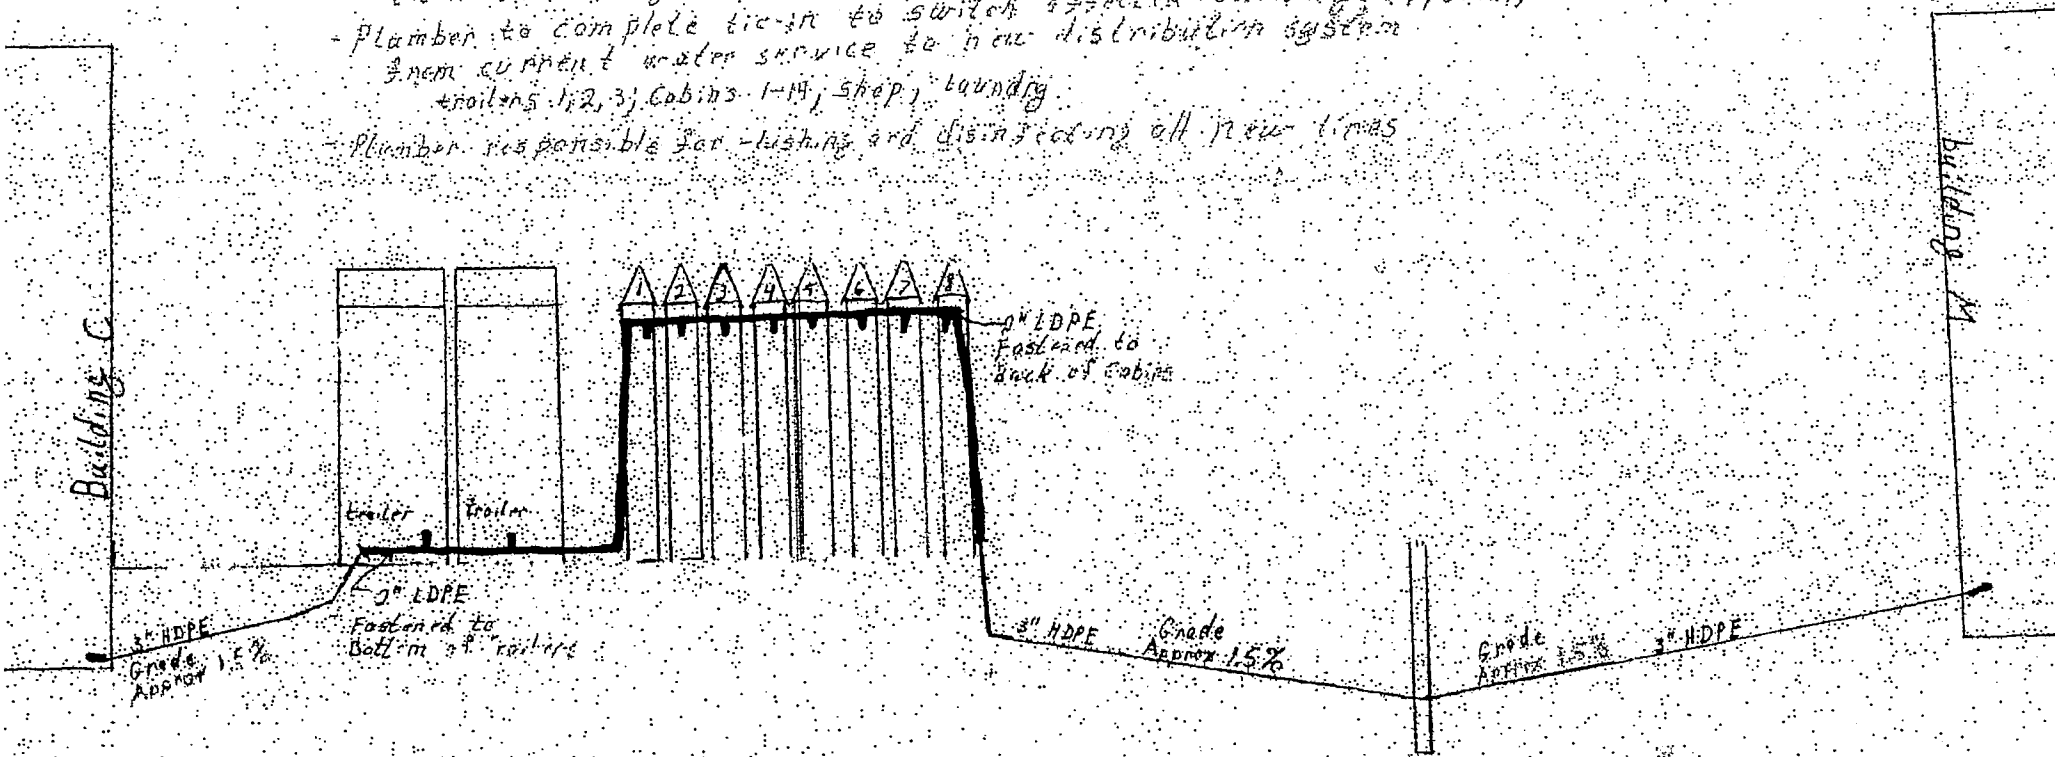 - Plumber to complete tie-in to switch
from current water service to new distribution system
trailers 1, 2, 3; Cabins 1-14; shop; Laundry
- Plumber responsible for -lushing and disinfecting all new lines
Building C
building M
1 2 3 4 5 6 7 8
2" LDPE
Fastened to
Back of Cabins
trailer
trailer
2" LDPE
Fastened to
Bottom of Trailers
3" HDPE
Grade
Approx 1.5%
3" HDPE
Grade
Approx 1.5%
Grade
Approx 1.5%
3" HDPE